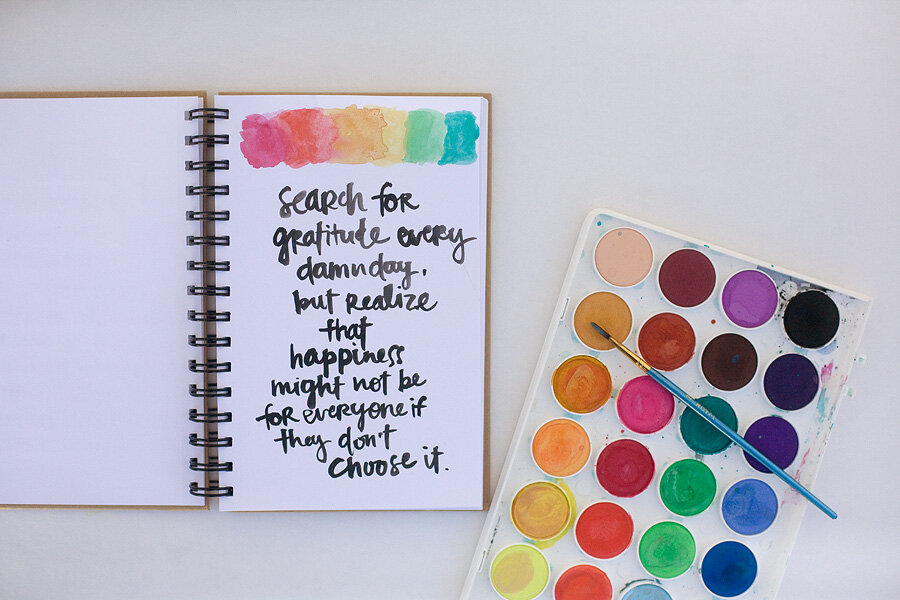 Search for
gratitude every
damn day,
but realize
that
happiness
might not be
for everyone if
they don't
choose it.